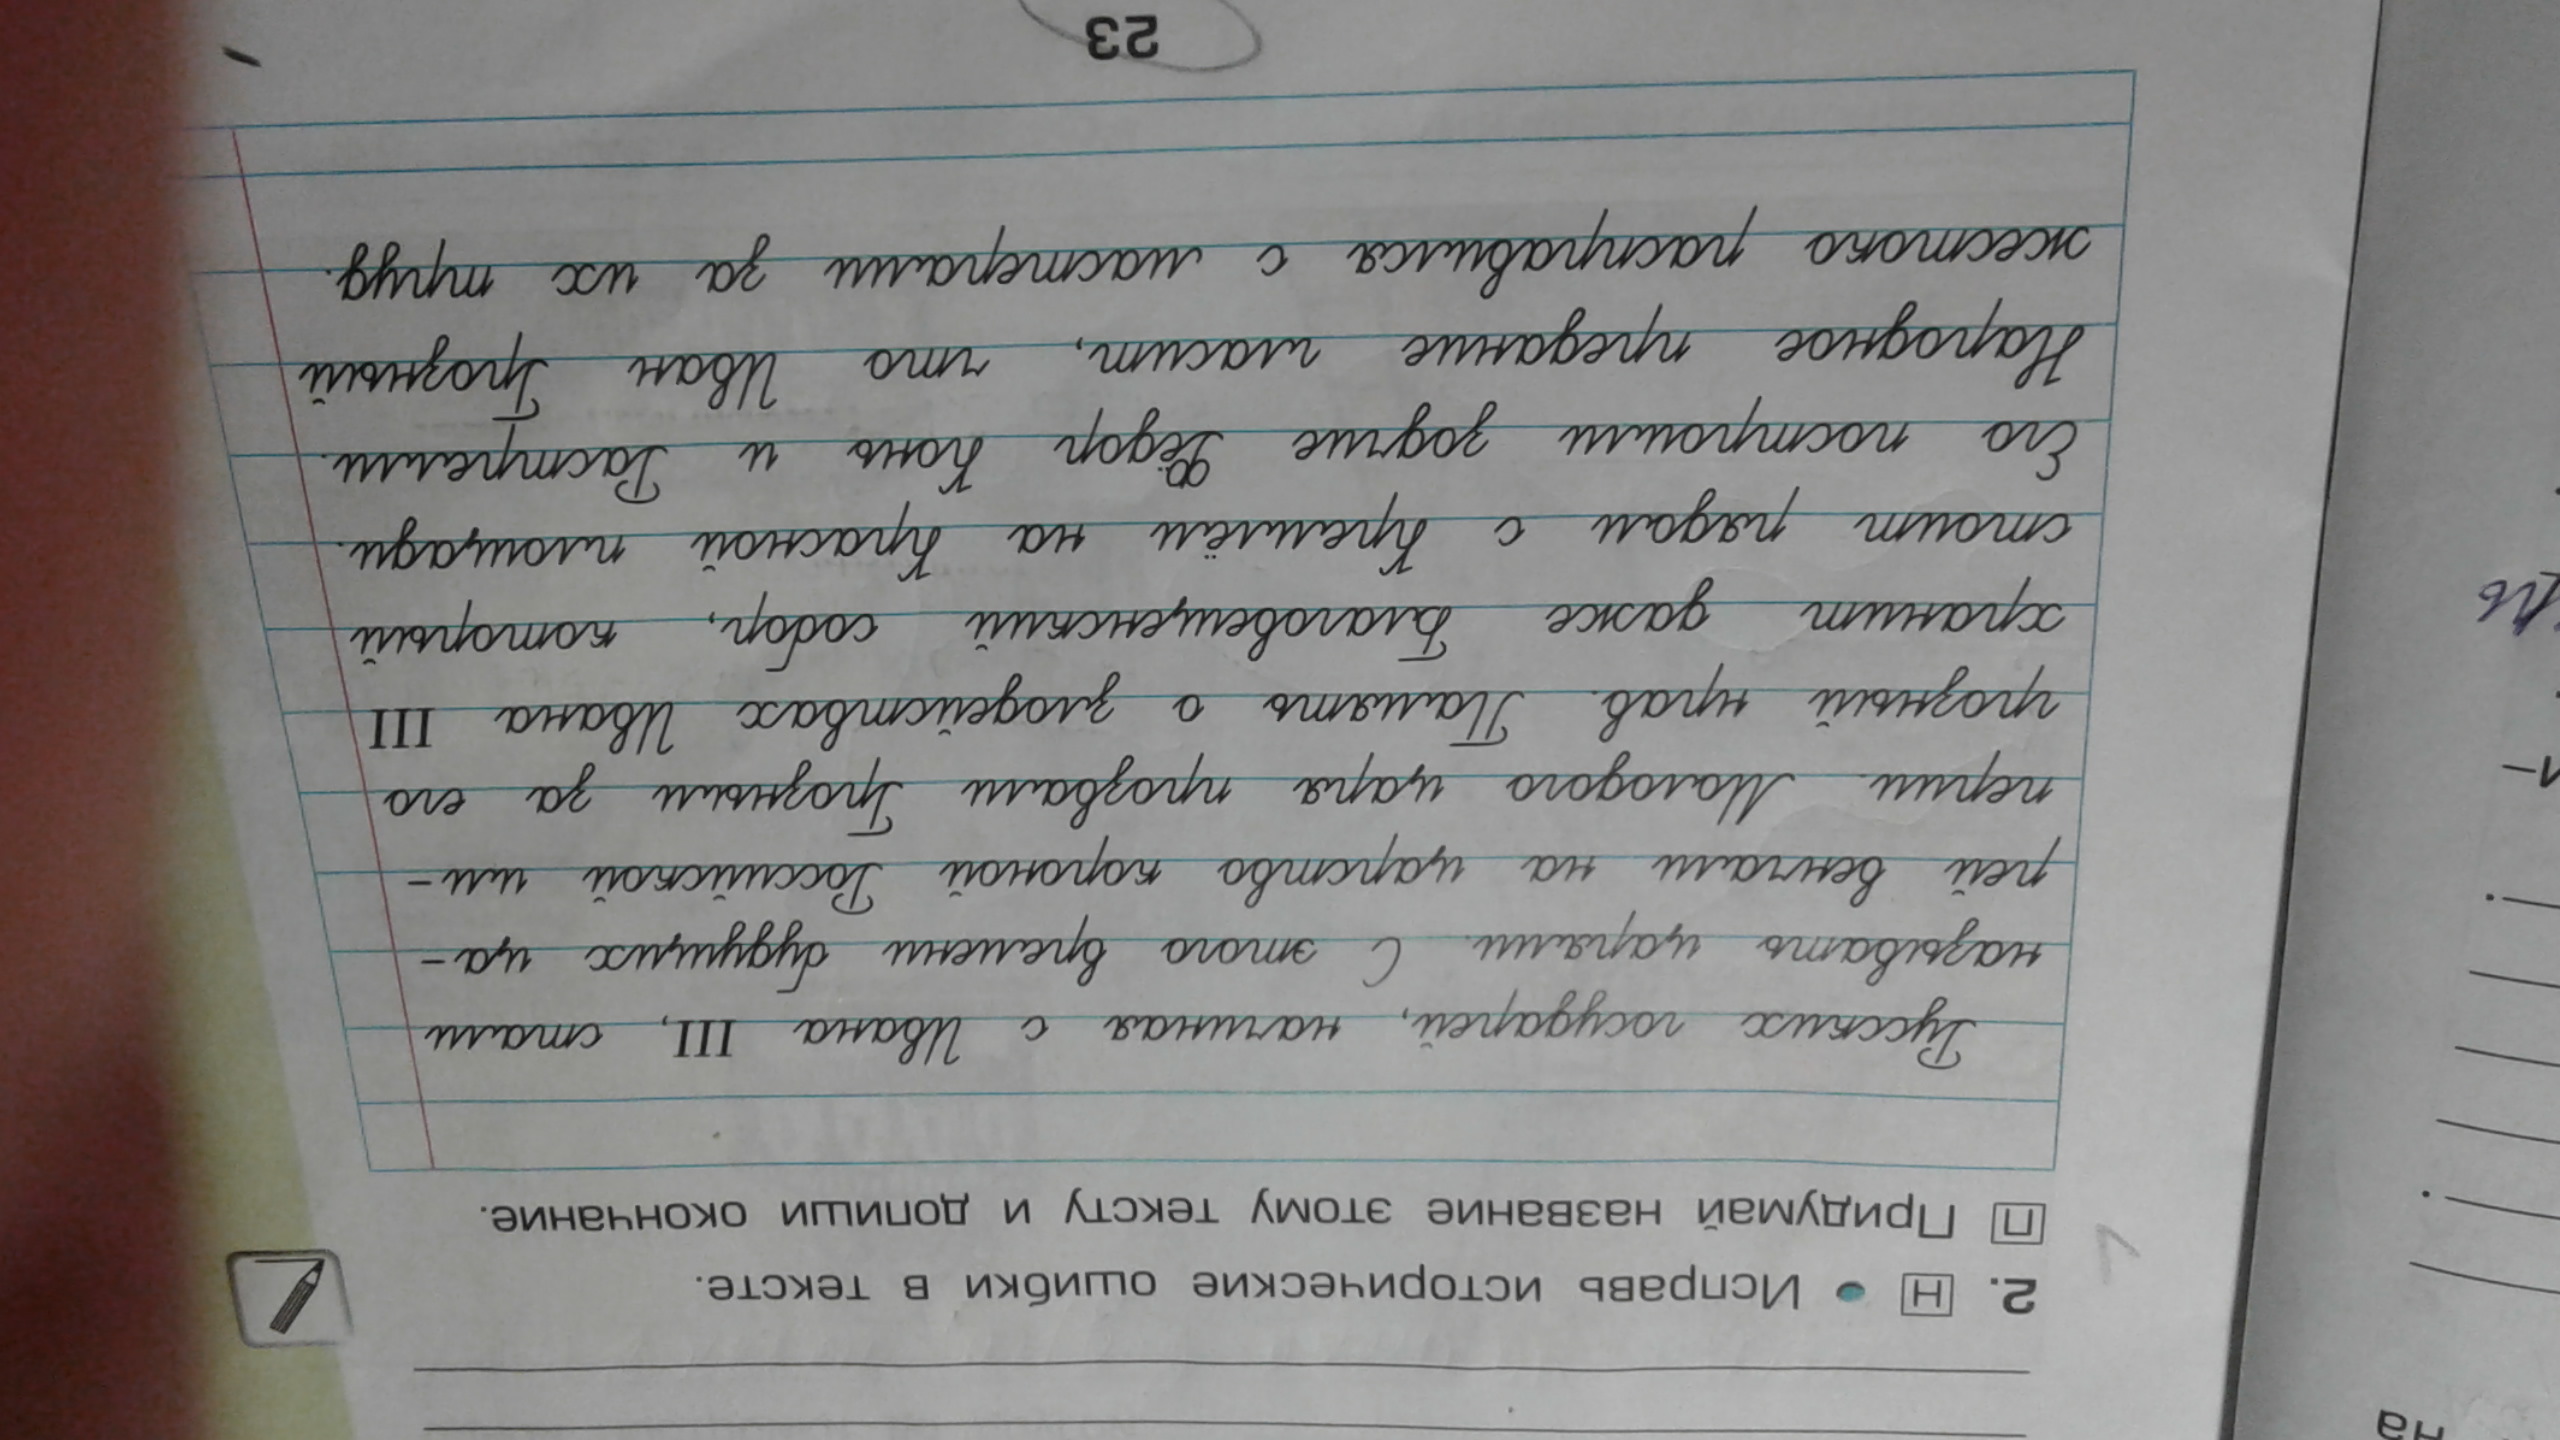 2. Н • Исправь исторические ошибки в тексте.
П Придумай название этому тексту и допиши окончание.
Русских государей, начиная с Ивана III, стали
называть царями. С этого времени будущих ца-
рей венчали на царство короной Российской им-
перии. Молодого царя прозвали Грозным за его
грозный нрав. Память о злодействах Ивана III
хранит даже Благовещенский собор, который
стоит рядом с Кремлём на Красной площади.
Его построили зодчие Фёдор Конь и Растрелли.
Народное предание гласит, что Иван Грозный
жестоко расправился с мастерами за их труд.
23
на